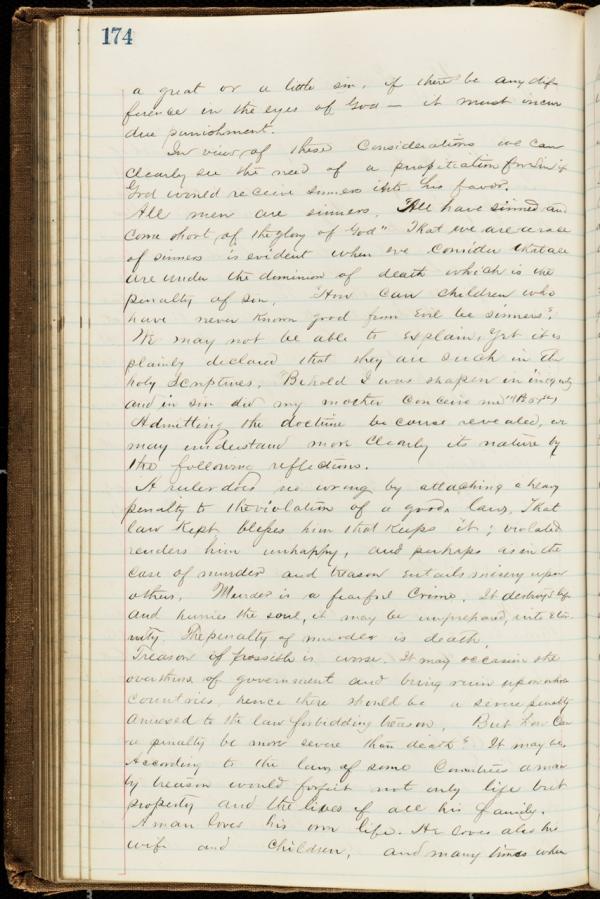 174
a great or a little sin, if there be any dif-
ference in the eyes of God — it must incur
due punishment.
In view of these Considerations we can
clearly see the need of a propitiation for Sin if
God would receive sinners into his favor.
All men are sinners. "All have sinned and
come short of the glory of God" That we are a race
of sinners is evident when we consider that all
are under the dominion of death which is the
penalty of sin. "How can children who
have never known good from Evil be sinners?"
We may not be able to explain, Yet it is
plainly declared that they are such in the
holy Scriptures. "Behold I was shapen in iniquity
and in sin did my mother conceive me"
Admitting the doctrine because revealed, we
may understand more clearly its nature by
the following reflections.
A ruler does no wrong by attaching a heavy
penalty to the violation of a good law. That
law kept blesses him that keeps it; violated
renders him unhappy, and perhaps as in the
case of murder and treason entails misery upon
others. Murder is a fearful Crime. It destroys life
and hurries the soul, it may be unprepared, into Eter-
nity. The penalty of murder is death.
Treason if possible is worse. It may occasion the
overthrow of government and bring ruin upon whole
Countries, hence there should be a severe penalty
annexed to the law forbidding treason. But how can
a penalty be more severe than death? It may be,
According to the laws of some Countries a man
by treason would forfeit not only life but
property and the lives of all his family.
A man loves his own life. He loves also his
wife and children, and many times when